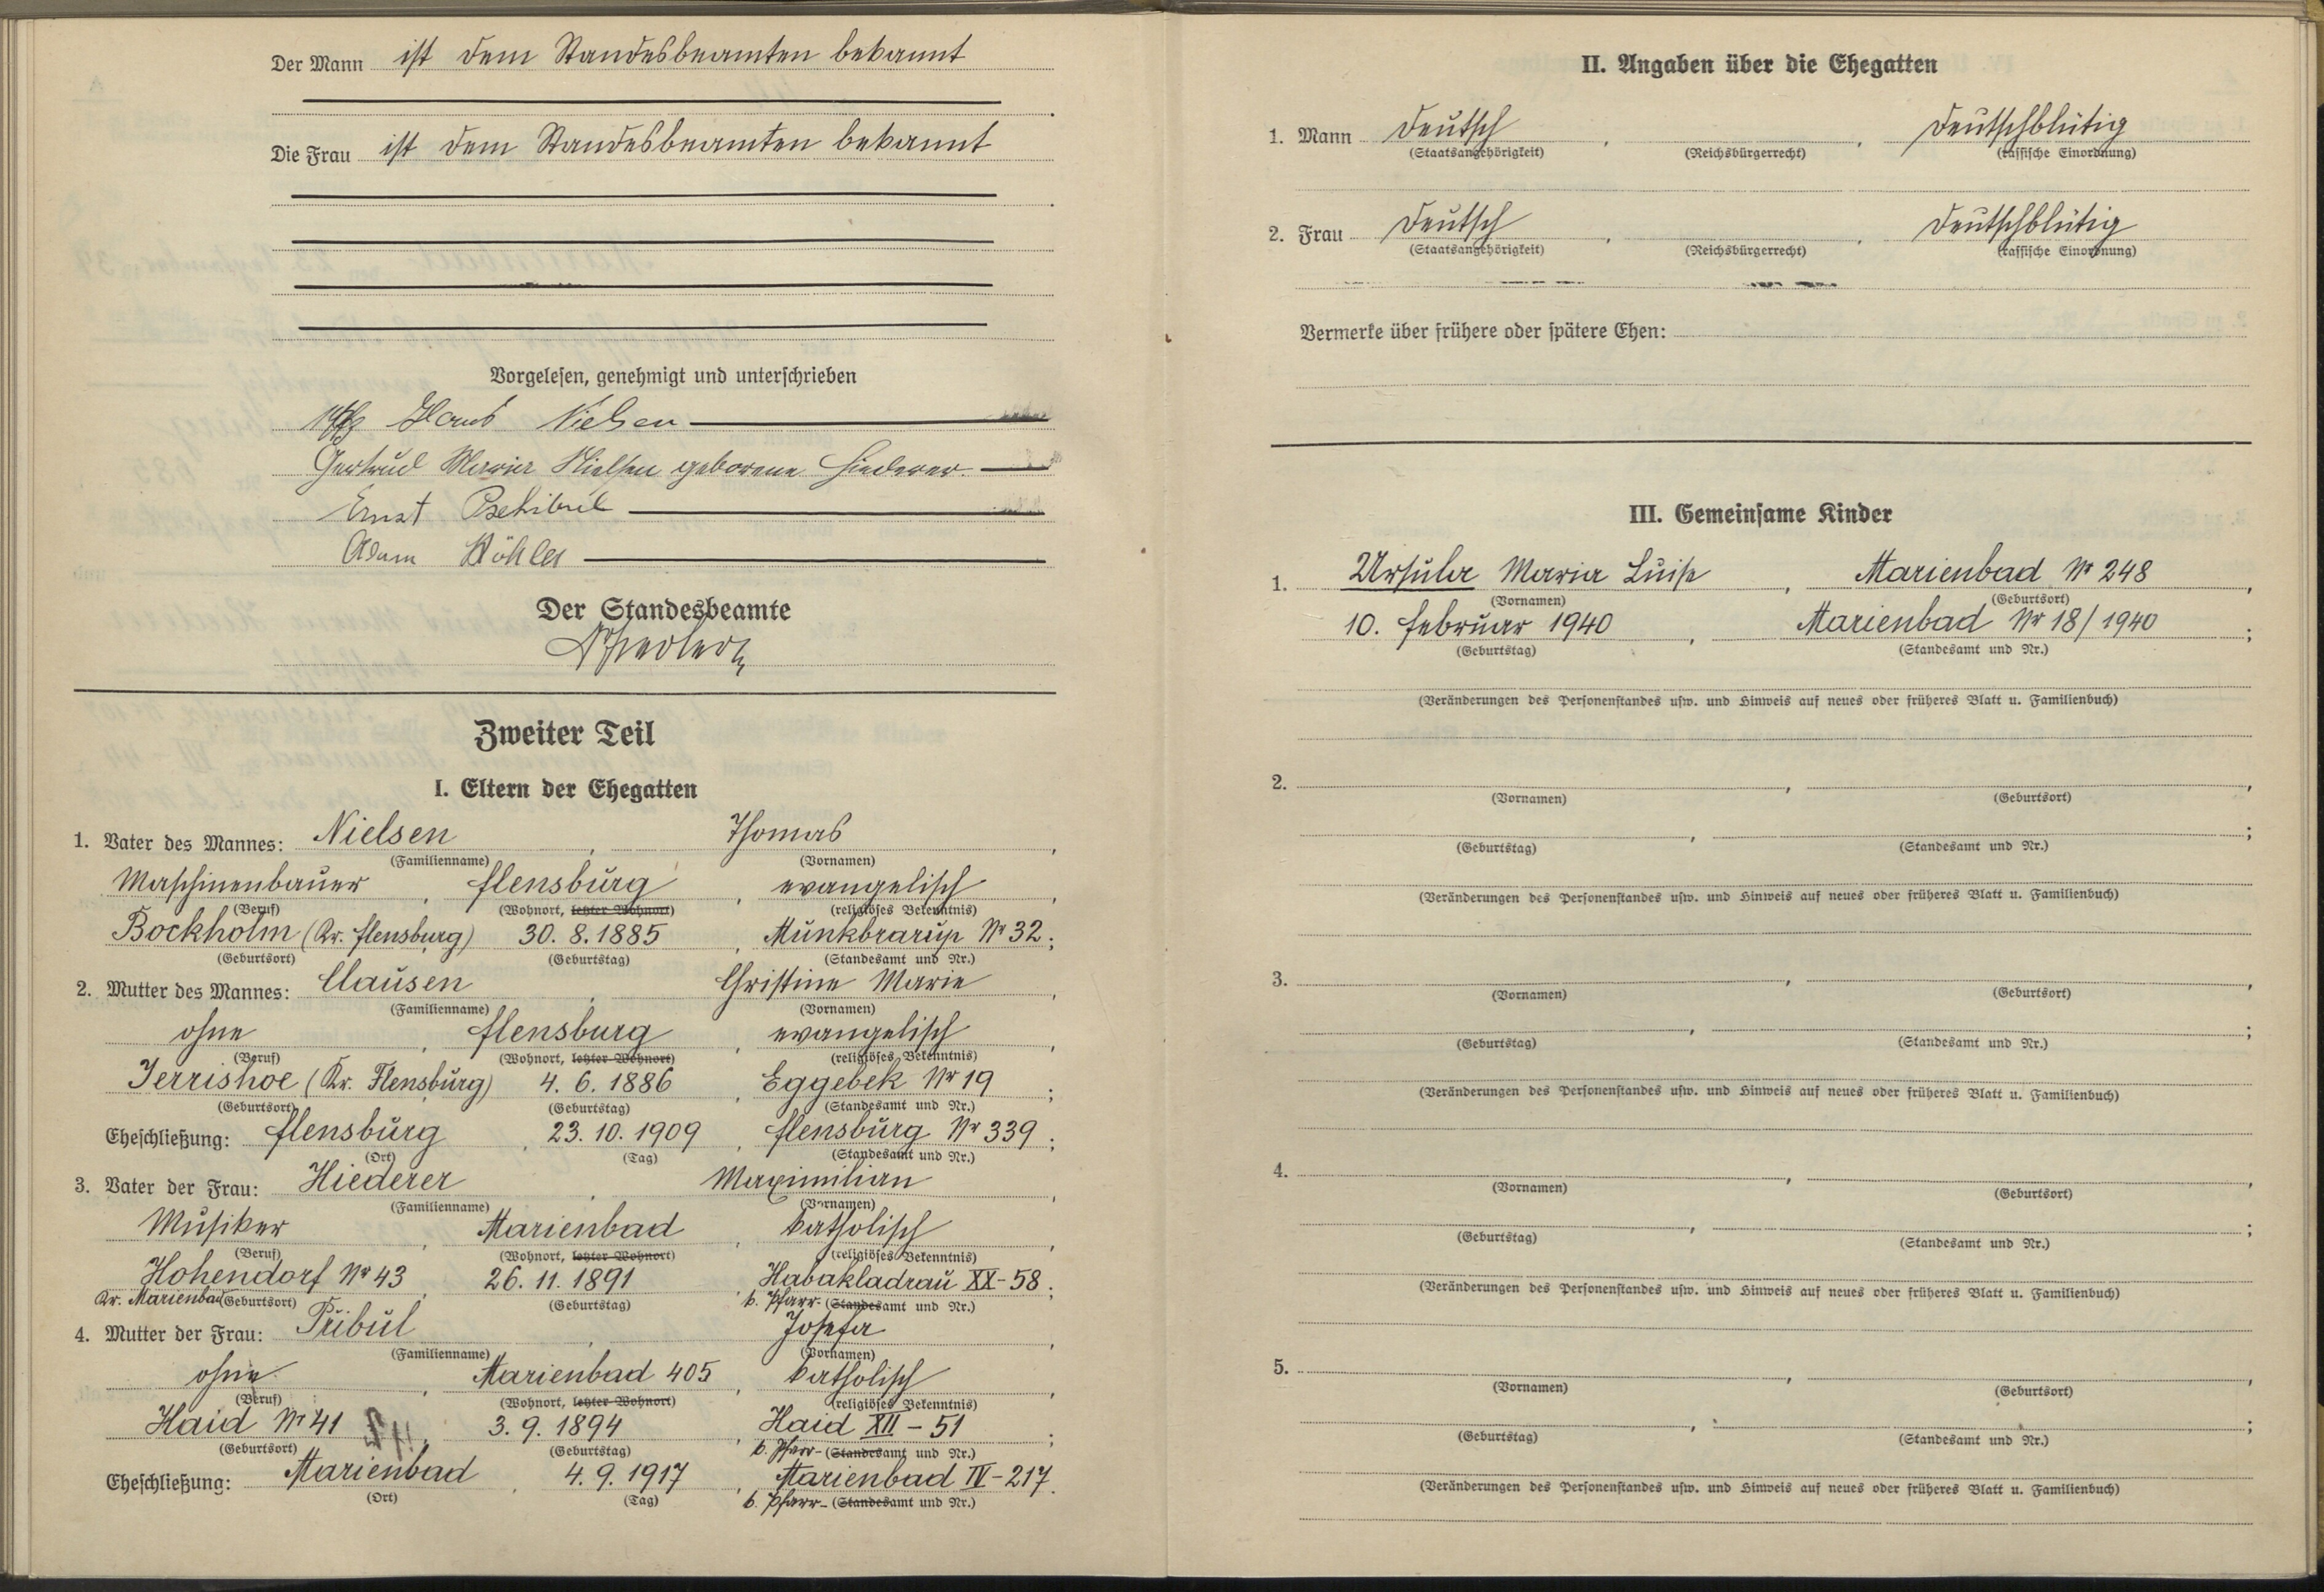 Der Mann ist dem Standesbeamten bekannt
Die Frau ist dem Standesbeamten bekannt
Vorgelesen, genehmigt und unterschrieben
Hans Nielsen
Gertrud Maria Nielsen geborene Hiederer
Ernst
Adam Köhler
Der Standesbeamte
Zweiter Teil
I. Eltern der Ehegatten
1. Vater des Mannes: Nielsen, Thomas,
(Familienname) (Vornamen)
Maschinenbauer, Flensburg, evangelisch,
(Beruf) (Wohnort, letzter Wohnort) (religiöses Bekenntnis)
Bockholm (Kr. Flensburg) 30. 8. 1885, Munkbrarup Nr 32;
(Geburtsort) (Geburtstag) (Standesamt und Nr.)
2. Mutter des Mannes: Clausen, Christine Marie,
(Familienname) (Vornamen)
ohne, Flensburg, evangelisch,
(Beruf) (Wohnort, letzter Wohnort) (religiöses Bekenntnis)
Jerrishoe (Kr. Flensburg) 4. 6. 1886, Eggebek Nr 19;
(Geburtsort) (Geburtstag) (Standesamt und Nr.)
Eheschließung: Flensburg, 23. 10. 1909, Flensburg Nr 339;
(Ort) (Tag) (Standesamt und Nr.)
3. Vater der Frau: Hiederer, Maximilian,
(Familienname) (Vornamen)
Musiker, Marienbad, katholisch,
(Beruf) (Wohnort, letzter Wohnort) (religiöses Bekenntnis)
Hohendorf Nr 43, 26. 11. 1891, Habakladrau XX-58;
Kr. Marienbad (Geburtsort) (Geburtstag) k. Pfarr- (Standesamt und Nr.)
4. Mutter der Frau: Přibul, Josefa,
(Familienname) (Vornamen)
ohne, Marienbad 405, katholisch,
(Beruf) (Wohnort, letzter Wohnort) (religiöses Bekenntnis)
Haid Nr 41, 3. 9. 1894, Haid XII - 51;
(Geburtsort) (Geburtstag) k. Pfarr- (Standesamt und Nr.)
Eheschließung: Marienbad, 4. 9. 1917, Marienbad IV-217.
(Ort) (Tag) k. Pfarr- (Standesamt und Nr.)
II. Angaben über die Ehegatten
1. Mann Deutsch, , Deutschblütig
(Staatsangehörigkeit) (Reichsbürgerrecht) (rassische Einordnung)
2. Frau Deutsch, , Deutschblütig
(Staatsangehörigkeit) (Reichsbürgerrecht) (rassische Einordnung)
Vermerke über frühere oder spätere Ehen:
III. Gemeinsame Kinder
1. Ursula Maria Luise, Marienbad Nr 248,
(Vornamen) (Geburtsort)
10. Februar 1940, Marienbad Nr 18/1940;
(Geburtstag) (Standesamt und Nr.)
(Veränderungen des Personenstandes usw. und Hinweis auf neues oder früheres Blatt u. Familienbuch)
2. , ,
(Vornamen) (Geburtsort)
, ;
(Geburtstag) (Standesamt und Nr.)
(Veränderungen des Personenstandes usw. und Hinweis auf neues oder früheres Blatt u. Familienbuch)
3. , ,
(Vornamen) (Geburtsort)
, ;
(Geburtstag) (Standesamt und Nr.)
(Veränderungen des Personenstandes usw. und Hinweis auf neues oder früheres Blatt u. Familienbuch)
4. , ,
(Vornamen) (Geburtsort)
, ;
(Geburtstag) (Standesamt und Nr.)
(Veränderungen des Personenstandes usw. und Hinweis auf neues oder früheres Blatt u. Familienbuch)
5. , ,
(Vornamen) (Geburtsort)
, ;
(Geburtstag) (Standesamt und Nr.)
(Veränderungen des Personenstandes usw. und Hinweis auf neues oder früheres Blatt u. Familienbuch)